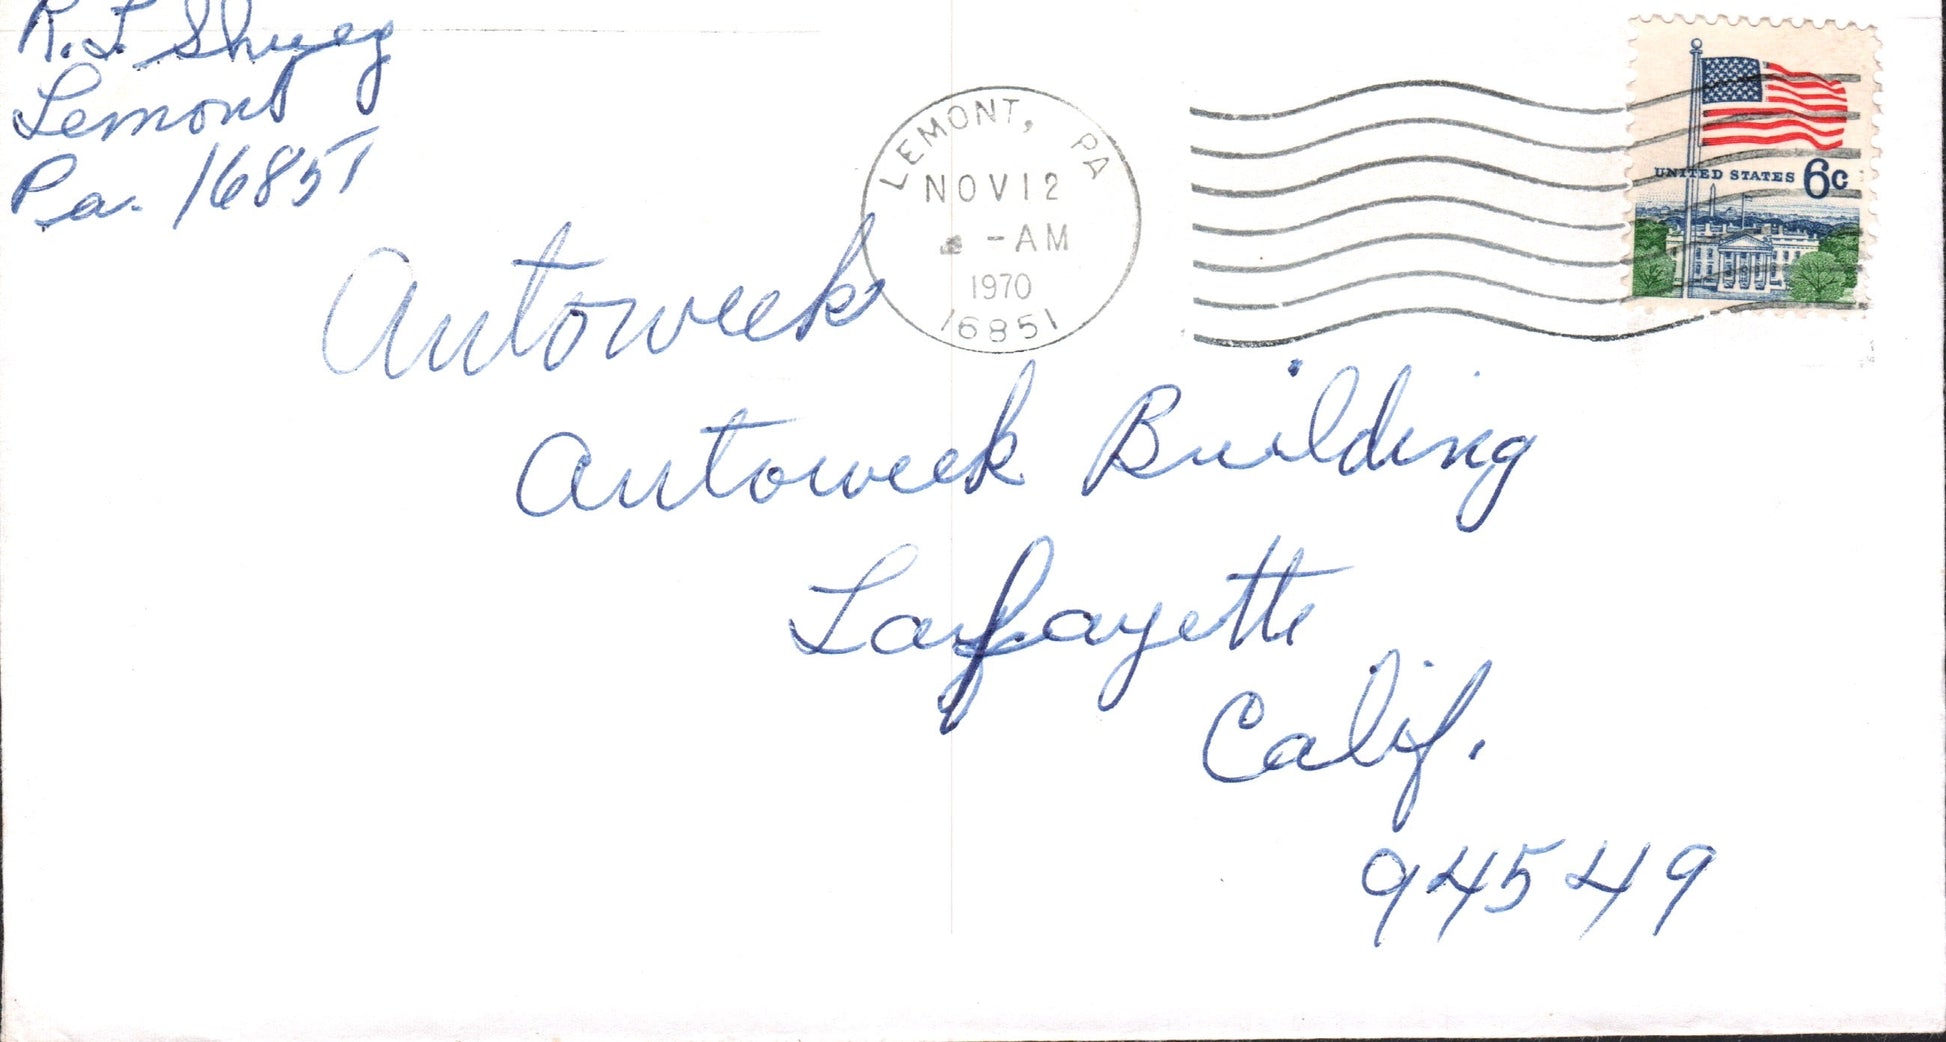 R. L. Shuey
Lemont
Pa. 16851
LEMONT, PA
NOV 12
-AM
1970
16851
UNITED STATES 6c
Autoweek
Autoweek Building
Lafayette
Calif.
94549